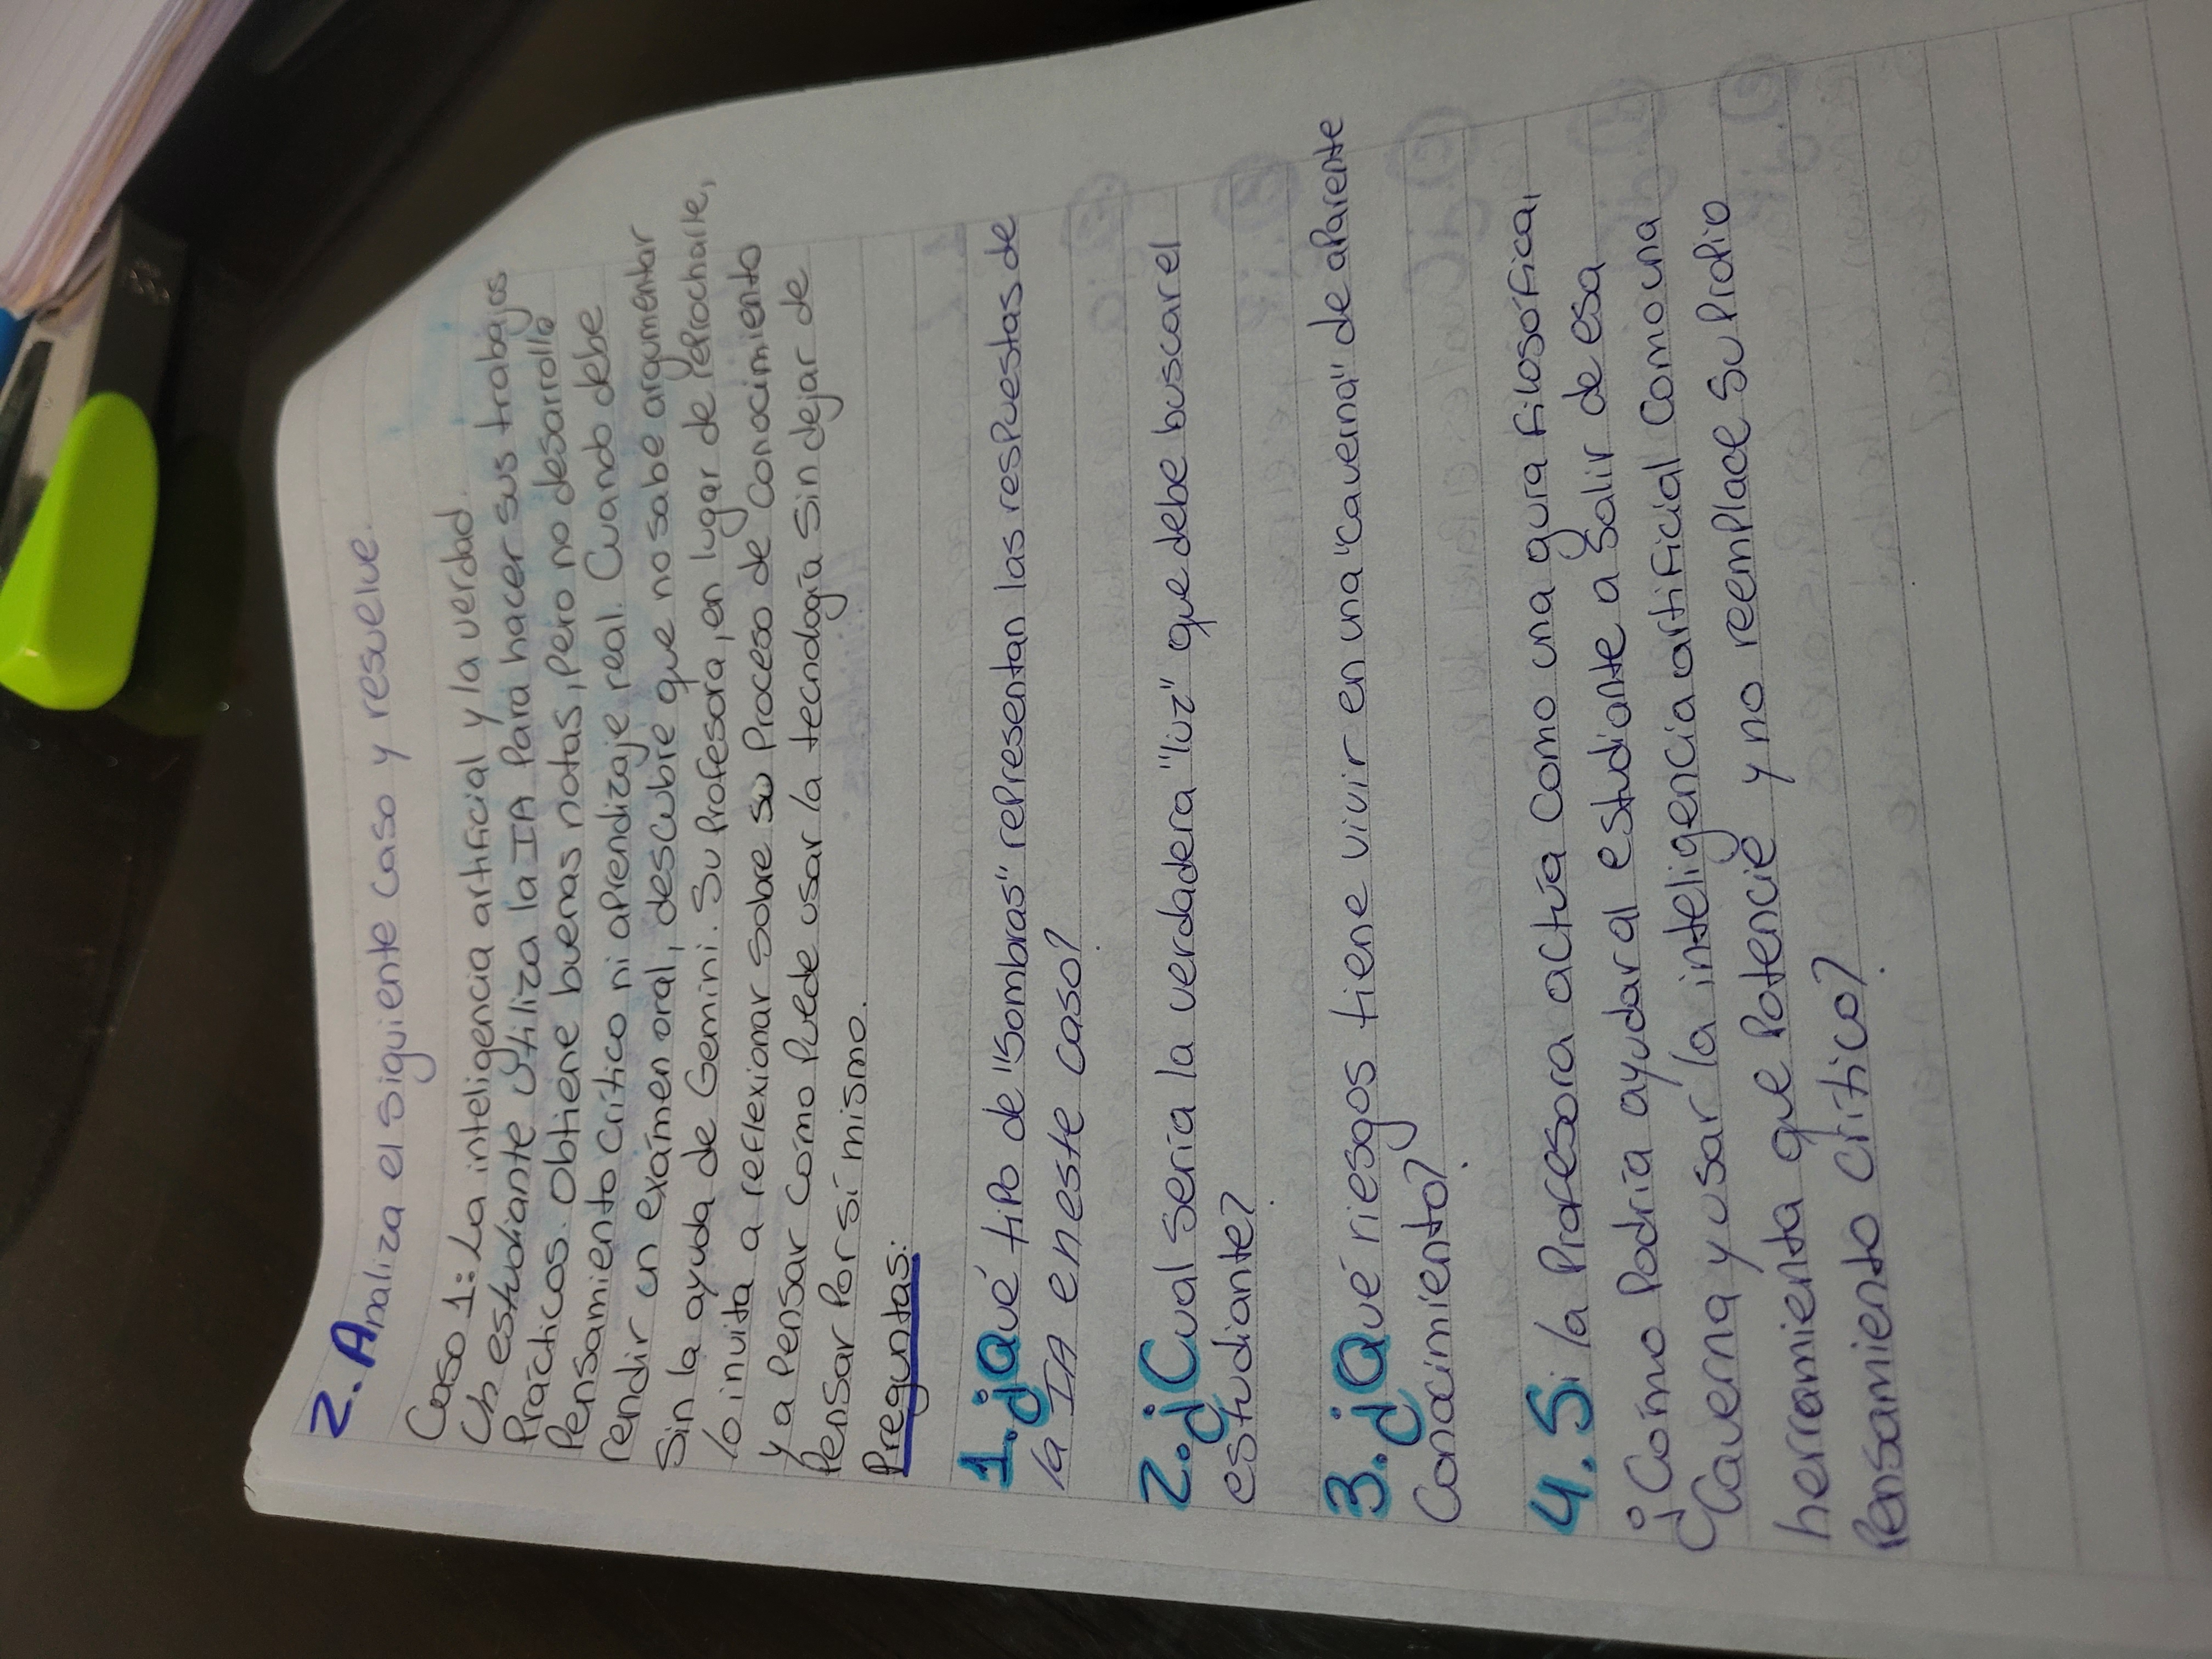 2. Analiza el siguiente caso y resuelve.
Caso 1: La inteligencia artificial y la verdad.
Un estudiante utiliza la IA Para hacer sus trabajos
Prácticos. Obtiene buenas notas, pero no desarrolló
Pensamiento crítico ni aprendizaje real. Cuando debe
rendir un exámen oral, descubre que no sabe argumentar
sin la ayuda de Gemini. Su Profesora, en lugar de reprocharle,
lo invita a reflexionar sobre su Proceso de Conocimiento
y a Pensar cómo Puede usar la tecnología sin dejar de
Pensar Por sí mismo.
Preguntas:
1. ¿Qué tipo de "Sombras" representan las respuestas de
la IA en este caso?
2. ¿Cual sería la verdadera "luz" que debe buscar el
estudiante?
3. ¿Qué riesgos tiene vivir en una "caverna" de aparente
Conocimiento?
4. Si la Profesora actúa como una guía filosófica,
¿Cómo Podría ayudar al estudiante a salir de esa
Caverna y usar la inteligencia artificial como una
herramienta que Potencie y no reemplace su propio
Pensamiento crítico?